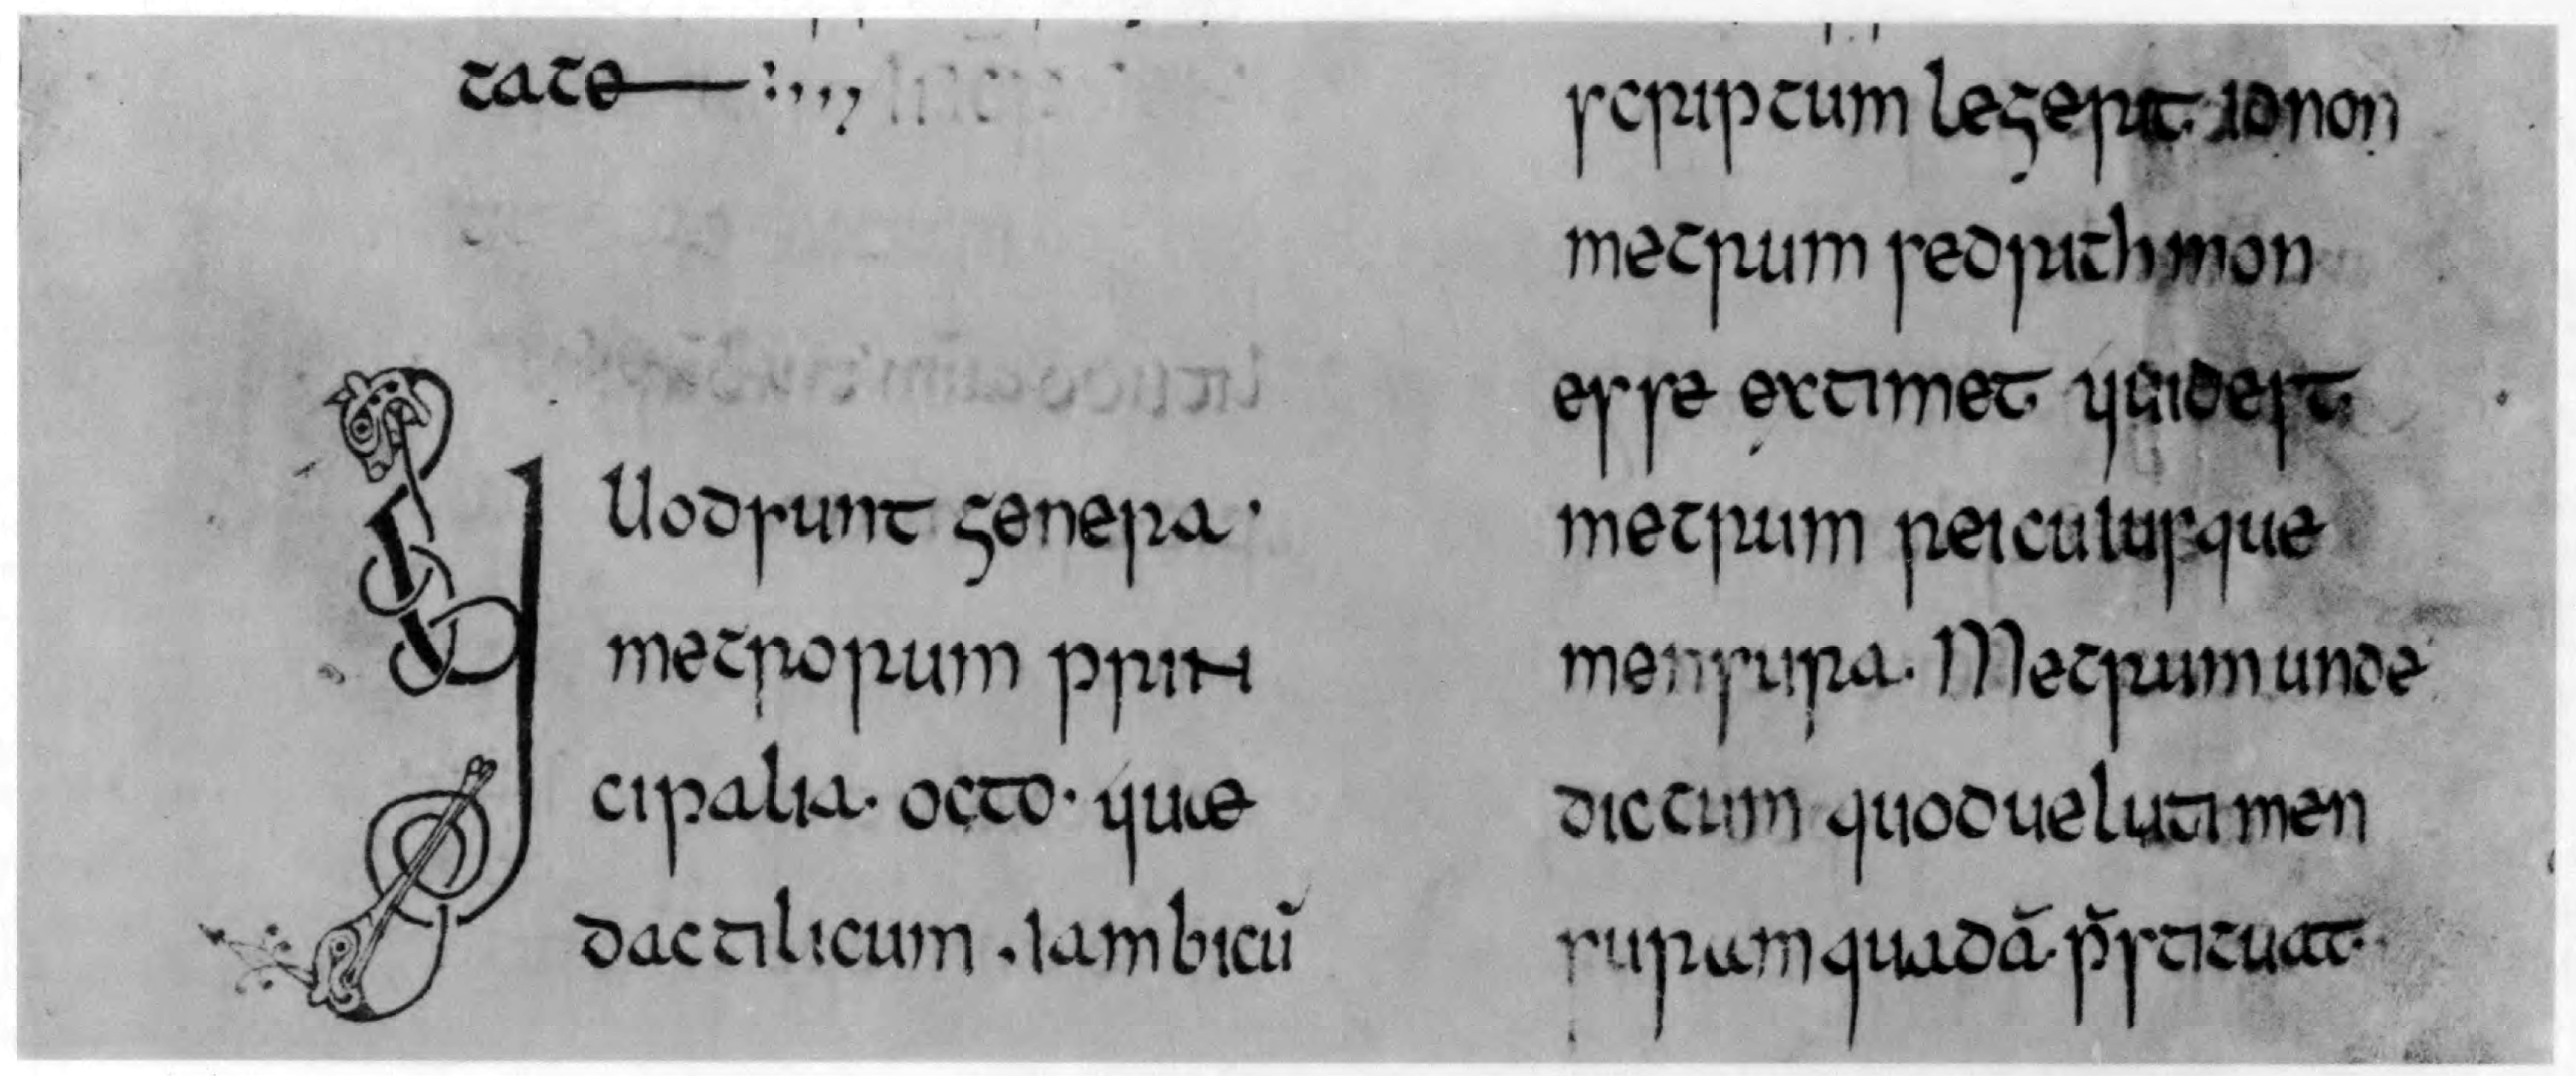 tate :,,,
Quodsunt genera ·
metrorum prin
cipalia · octo · quae
dactilicum . iambicū
scriptum legerit idnon
metrum sedrithmon
esse extimet quidest
metrum reiculusque
mensura · Metrum unde
dictum quoduelutimen
suramquadā · p̄stituat ·